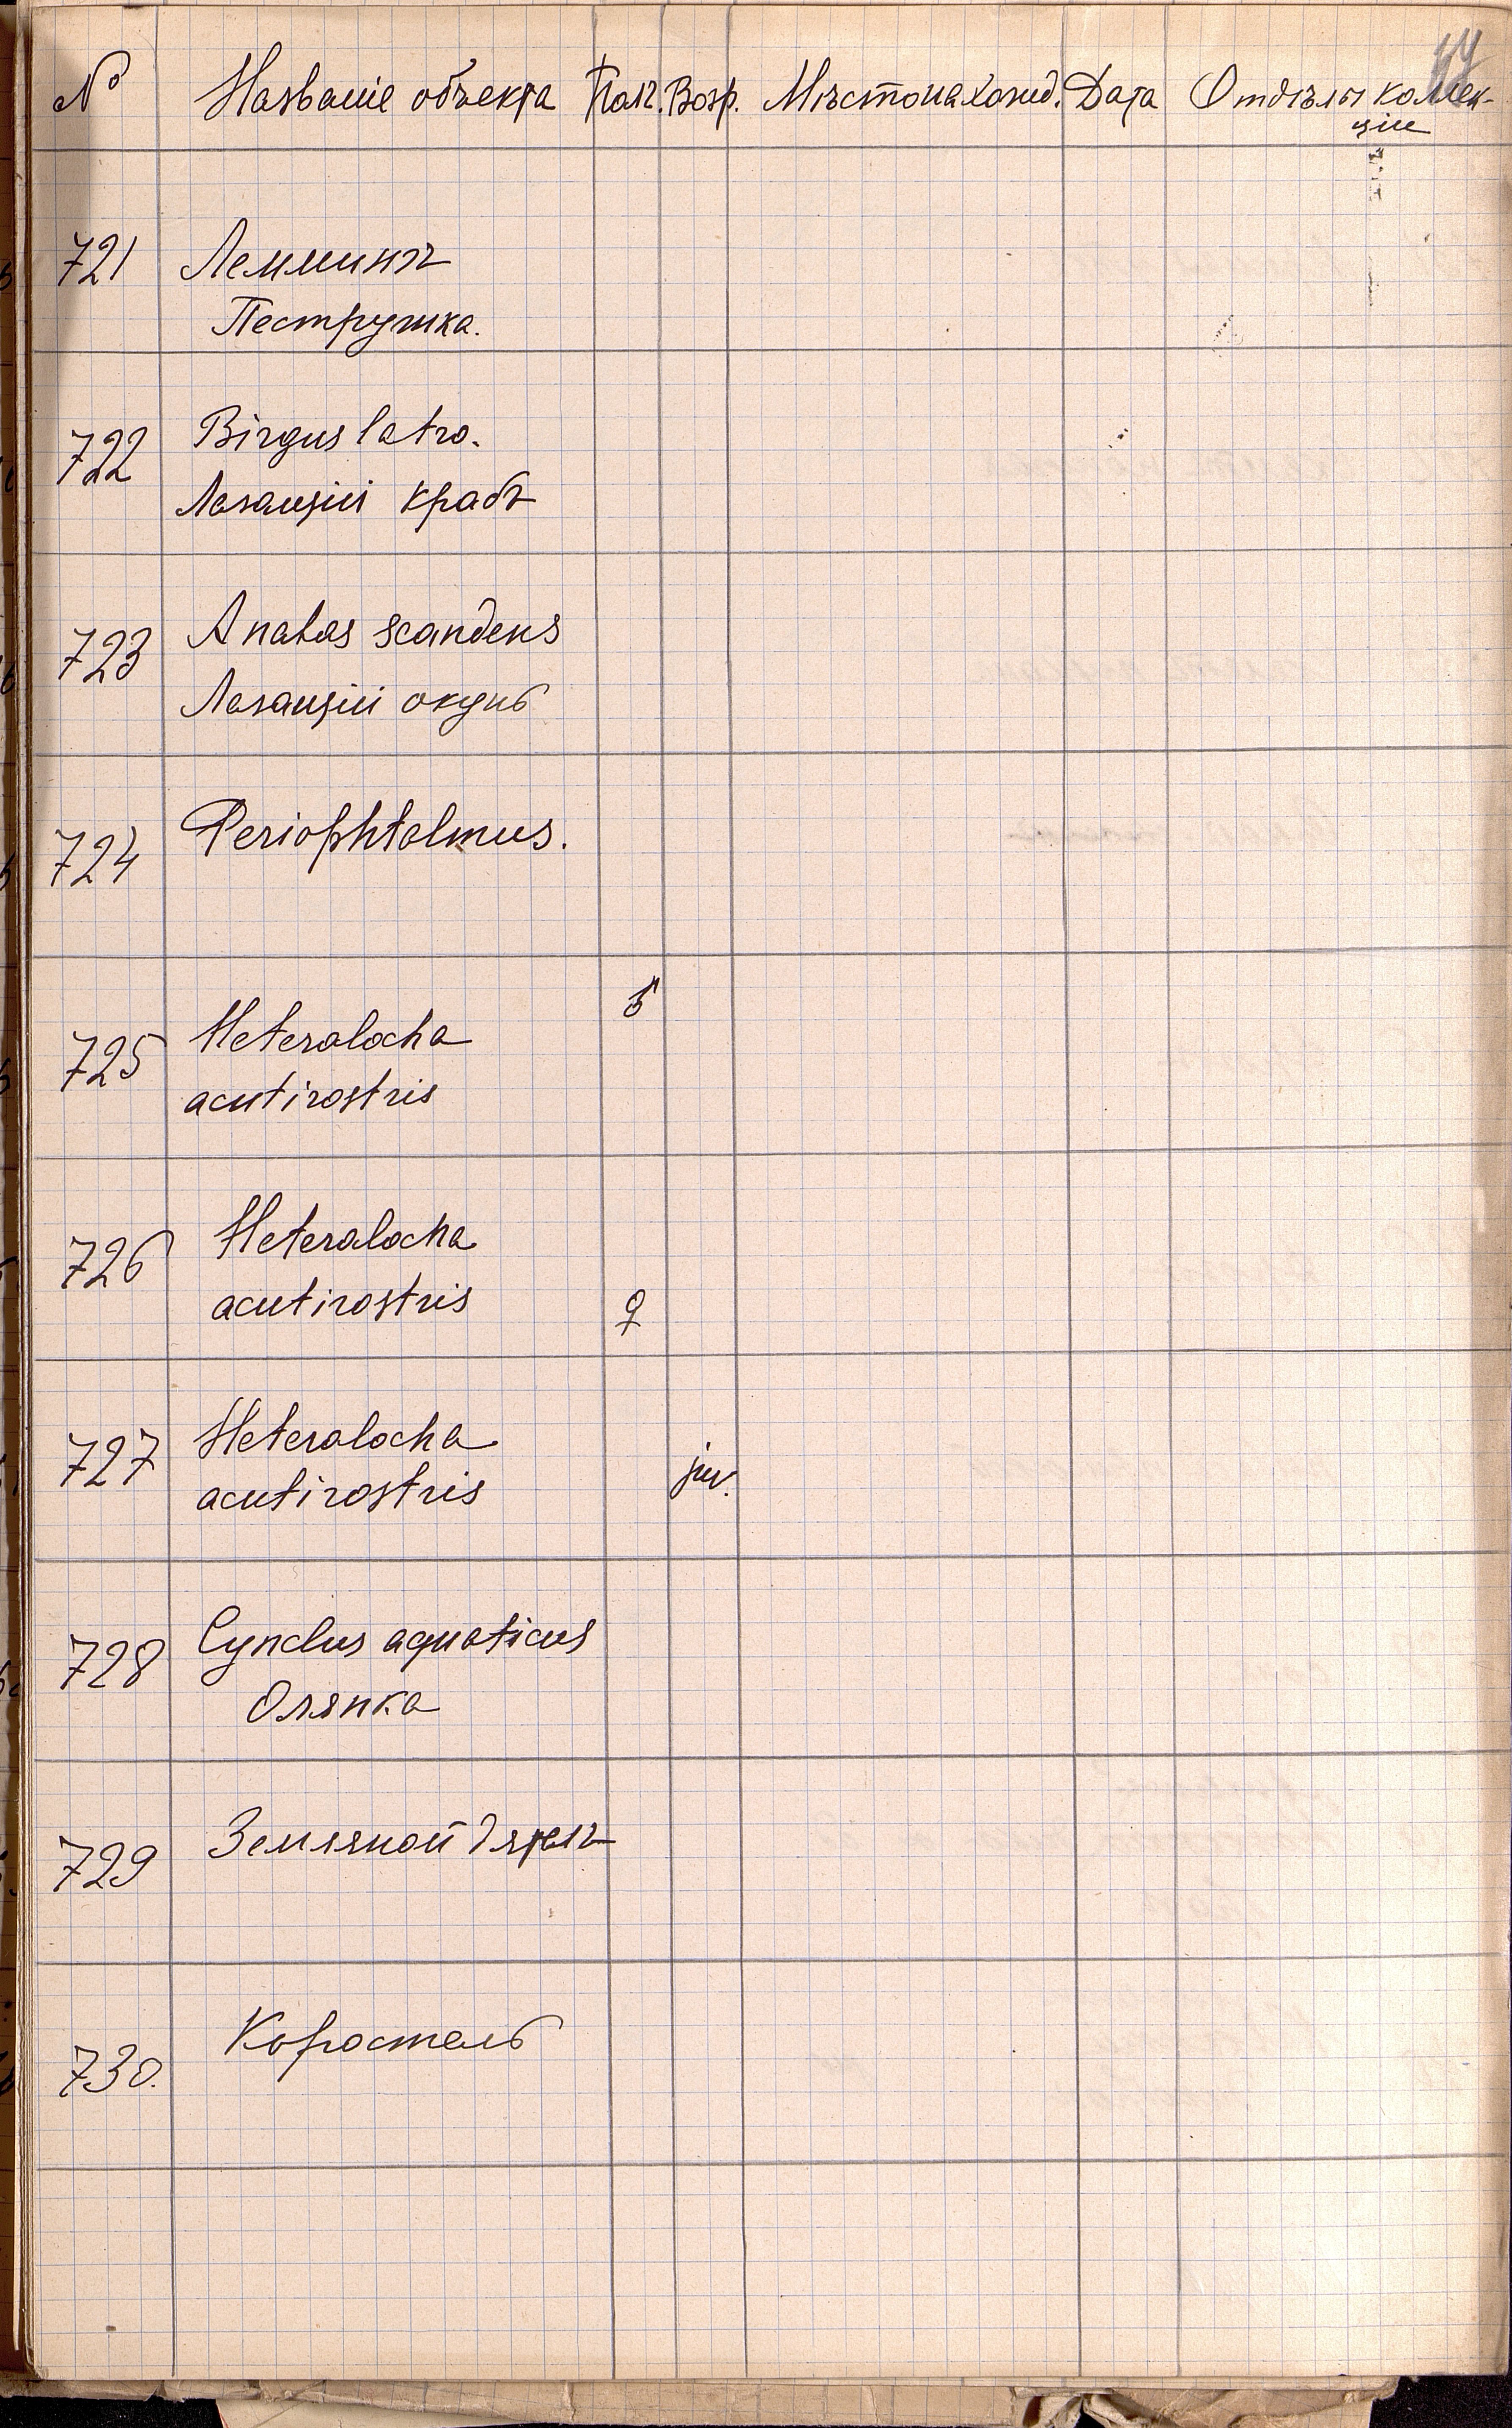 № Названіе объекта Полъ. Возр. Мѣстонахожд. Дата Отдѣлы коллек-
ціи
721 Леммингъ
Пеструшка.
722 Birgus latro.
Лазающій крабъ
723 Anabas scandens
Лазающій окунь
724 Periophtalmus.
725 Heteralocha ♂
acutirostris
726 Heteralocha
acutirostris ♀
727 Heteralocha
acutirostris juv.
728 Cynclus aquaticus
Оляпка
729 Земляной дятелъ
730. Коростель